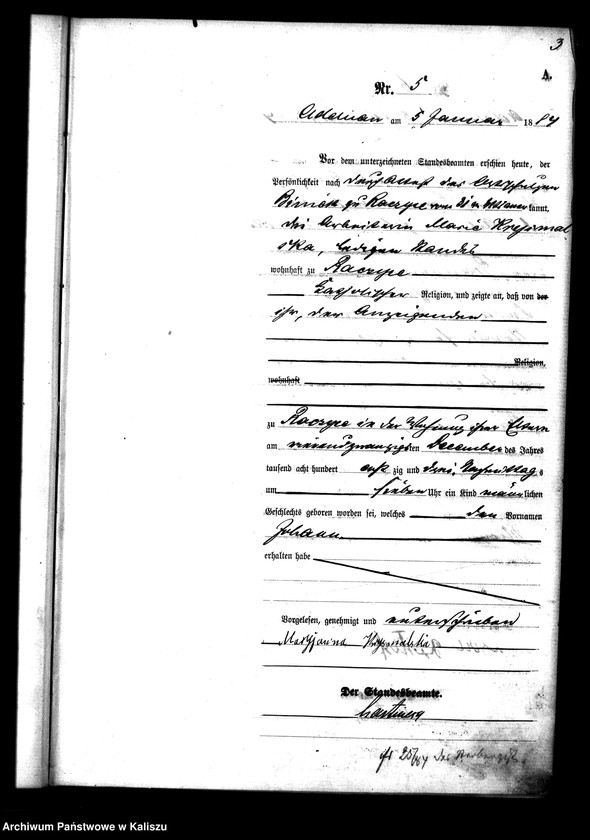 3
A.
Nr. 5
am 5 Januar 1884
Vor dem unterzeichneten Standesbeamten erschien heute, der
Persönlichkeit nach durch Attest des Ortsschulzen
zu Raczyce vom kannt,
die Arbeiterin Maria
ska, ledigen Standes
wohnhaft zu Raczyce
katholischer Religion, und zeigte an, daß von der
ihr, der Anzeigenden
Religion,
wohnhaft
zu Raczyce in der Wohnung ihrer Eltern
am vierundzwanzigsten December des Jahres
tausend acht hundert acht zig und drei, Nachmittags
um sieben Uhr ein Kind männlichen
Geschlechts geboren worden sei, welches den Vornamen
Johann
erhalten habe
Vorgelesen, genehmigt und unterschrieben
Maryjanna
Der Standesbeamte.
Archiwum Państwowe w Kaliszu